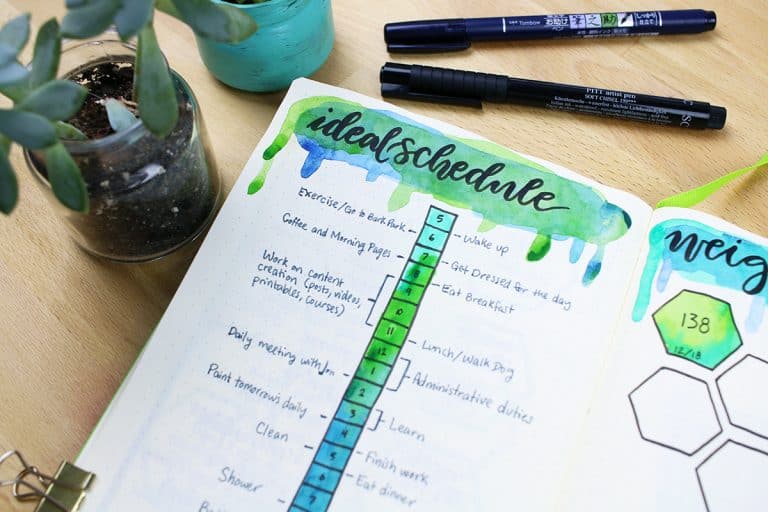 Tombow
PITT artist pen
SOFT CHISEL 199***
SC
ideal schedule
Exercise/Go to Bark Park
Coffee and Morning Pages
Work on content
creation (posts, videos,
printables, courses)
Daily meeting with
Paint tomorrows daily
Clean
Shower
5
6
7
8
9
10
11
12
1
2
3
4
5
6
7
Wake up
Get Dressed for the day
Eat Breakfast
Lunch/Walk Dog
Administrative duties
Learn
Finish work
Eat dinner
weig
138
12/18